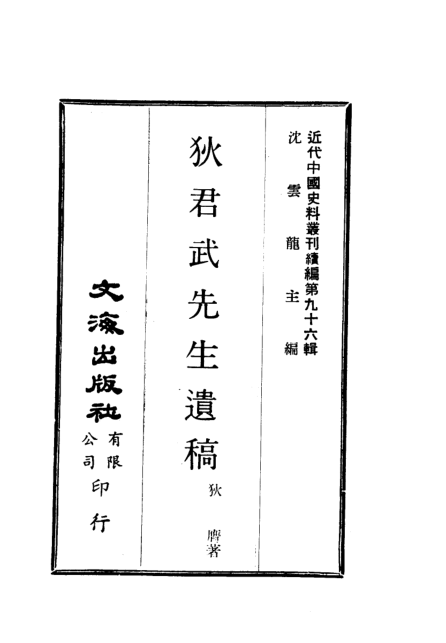 近代中國史料叢刊續編第九十六輯
沈雲龍主編
狄君武先生遺稿
狄膺著
文海出版社
有限
公司
印行